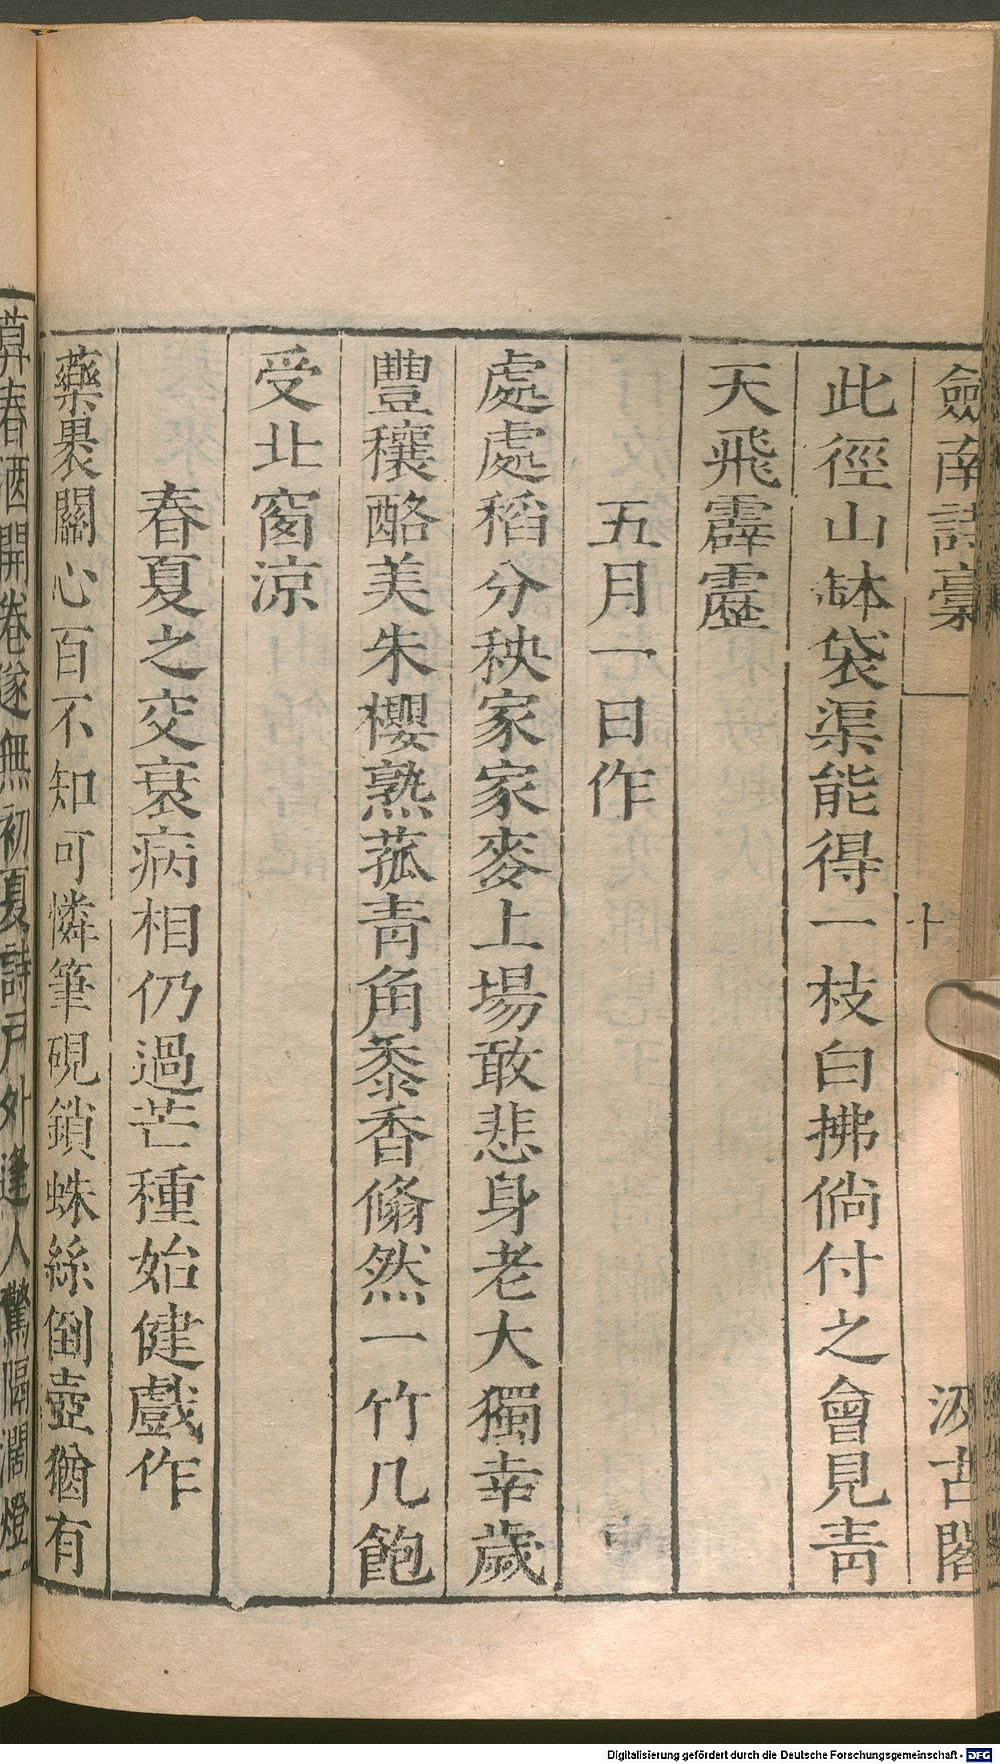 劍南詩稾
十
汲古閣
此徑山缽袋渠能得一枝白拂倘付之會見靑
天飛霹靂
五月一日作
處處稻分秧家家麥上場敢悲身老大獨幸歲
豐穰酪美朱櫻熟菰靑角黍香翛然一竹几飽
受北窗涼
春夏之交衰病相仍過芒種始健戲作
藥裹關心百不知可憐筆硯鎖蛛絲倒壺猶有
算春酒開卷遂無初夏詩戶外逢人驚隔濶燈
Digitalisierung gefördert durch die Deutsche Forschungsgemeinschaft - DFG